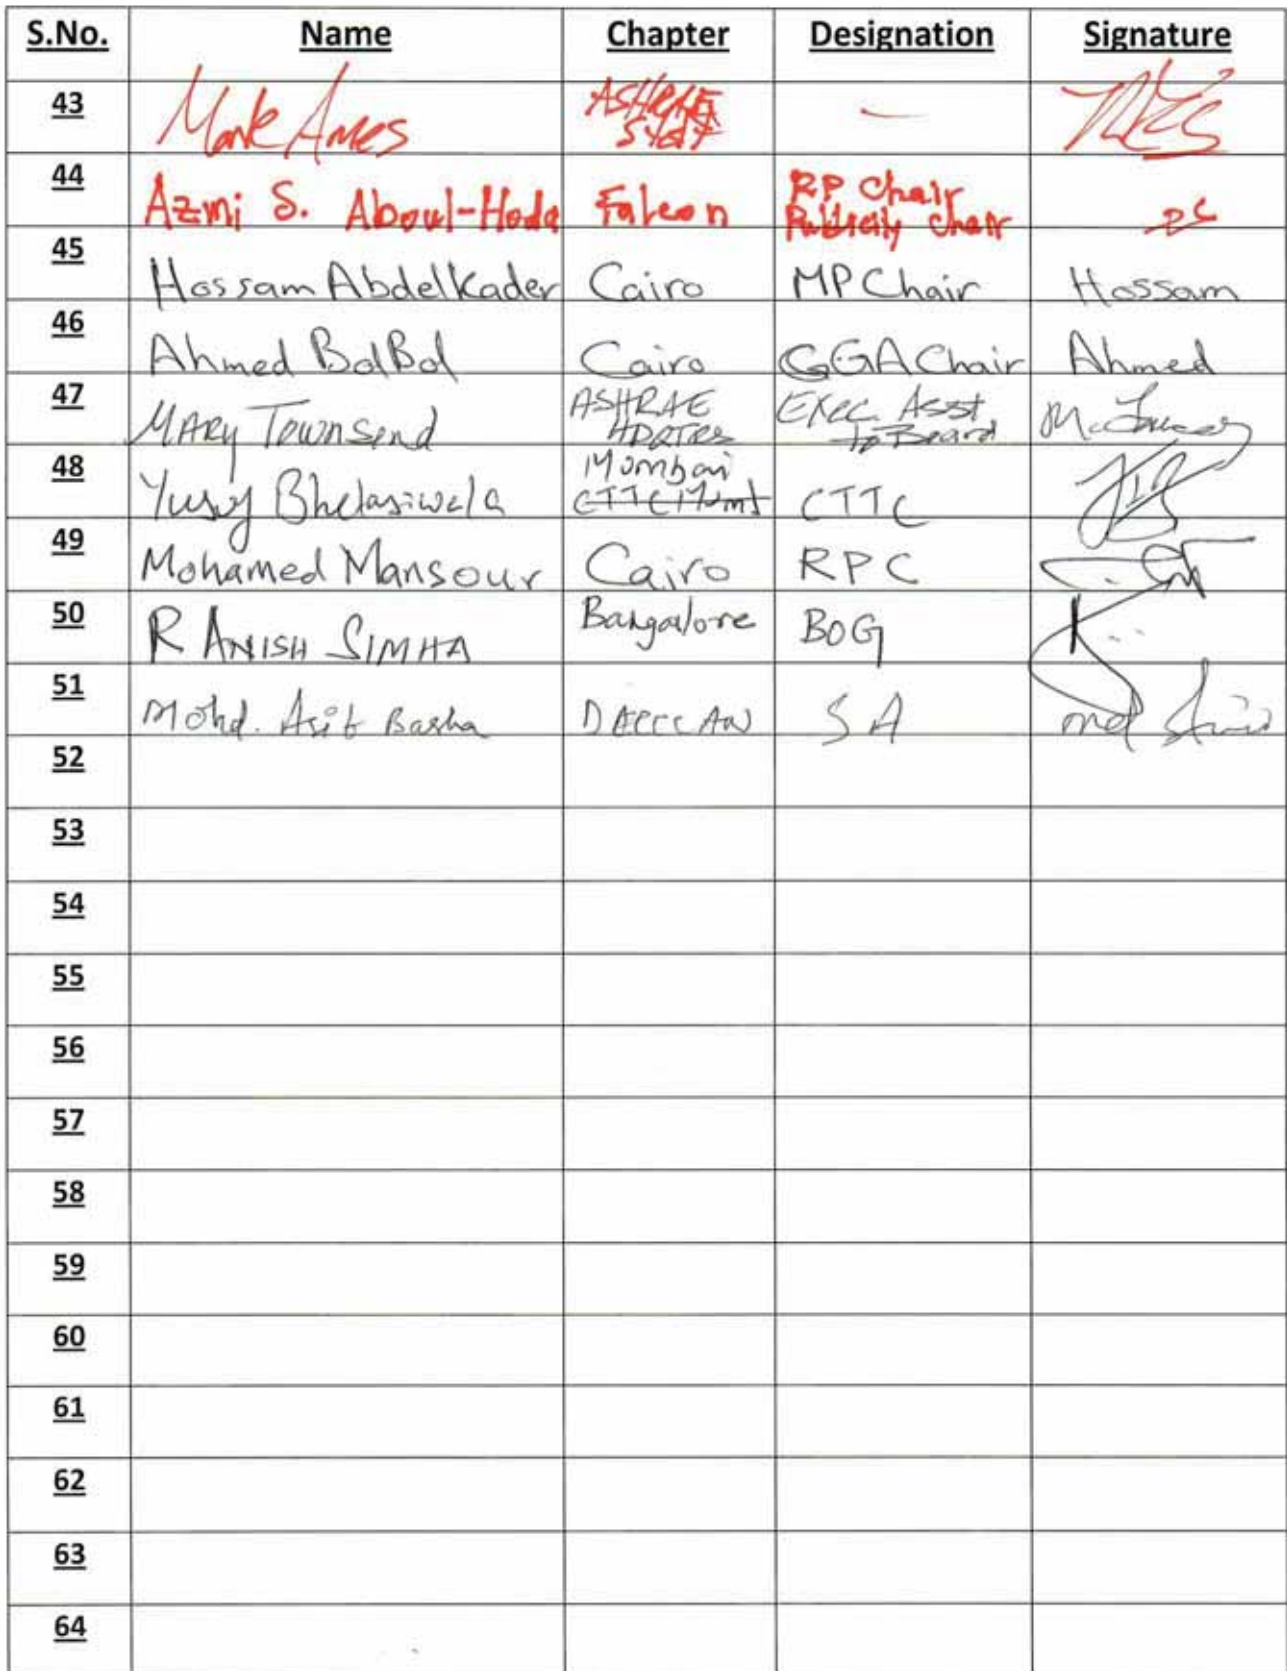 S.No. Name Chapter Designation Signature
43 Mark Ames ASHRAE Staff —
44 Azmi S. Aboul-Hoda Falcon RP Chair Publicity Chair
45 Hossam Abdelkader Cairo MP Chair Hossam
46 Ahmed BolBol Cairo GGA Chair Ahmed
47 MARy Townsend ASHRAE HDQTRS Exec Asst to Board
48 Yusuf Mumbai CTTC
49 Mohamed Mansour Cairo RPC
50 R ANISH SIMHA Bangalore BOG
51 Mohd. Asif Basha SA
52
53
54
55
56
57
58
59
60
61
62
63
64